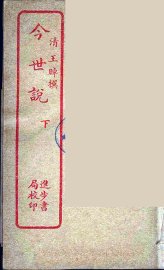 清 王晫撰
今世說
下
進步書
局校印